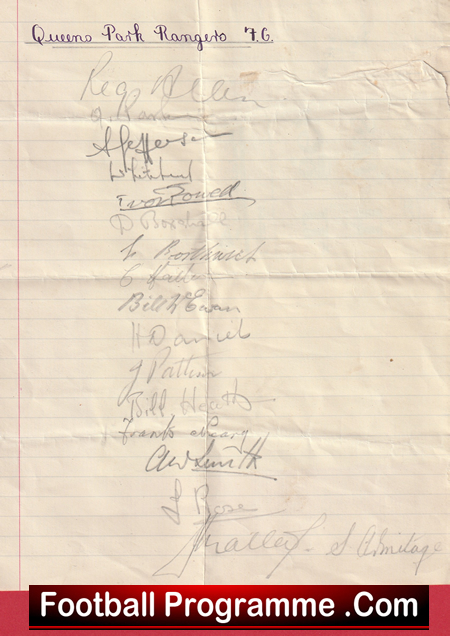 Queens Park Rangers F.C.
Reg Allen
A Jefferson
Ivor Powell
D Boxshall
G Hatton
Bill McEwan
H Daniel
J Pattison
Bill Heath
Frank Neary
A W Smith
J Rose
S Armitage
Football Programme .Com